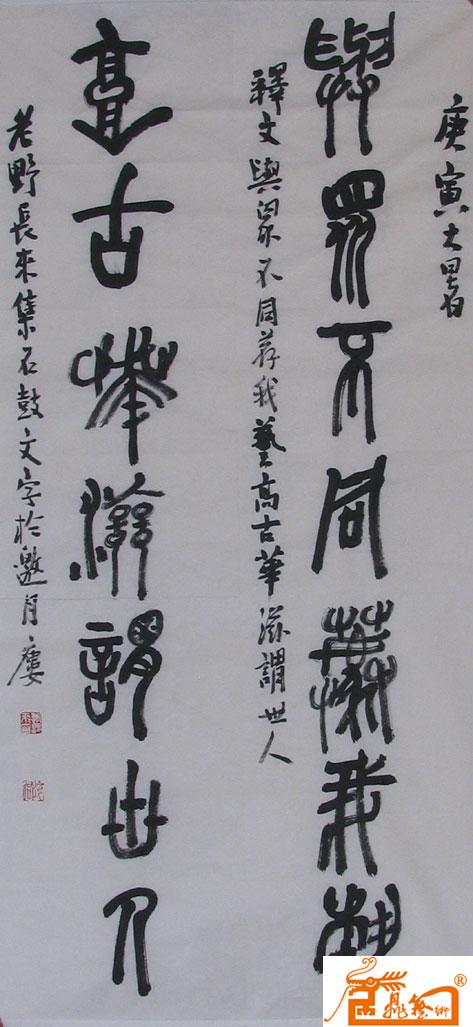 庚寅大暑
與眾不同薦我藝
釋文與眾不同荐我藝高古華滋謂世人
高古華滋謂世人
老野長來集石鼓文字於邀月廔